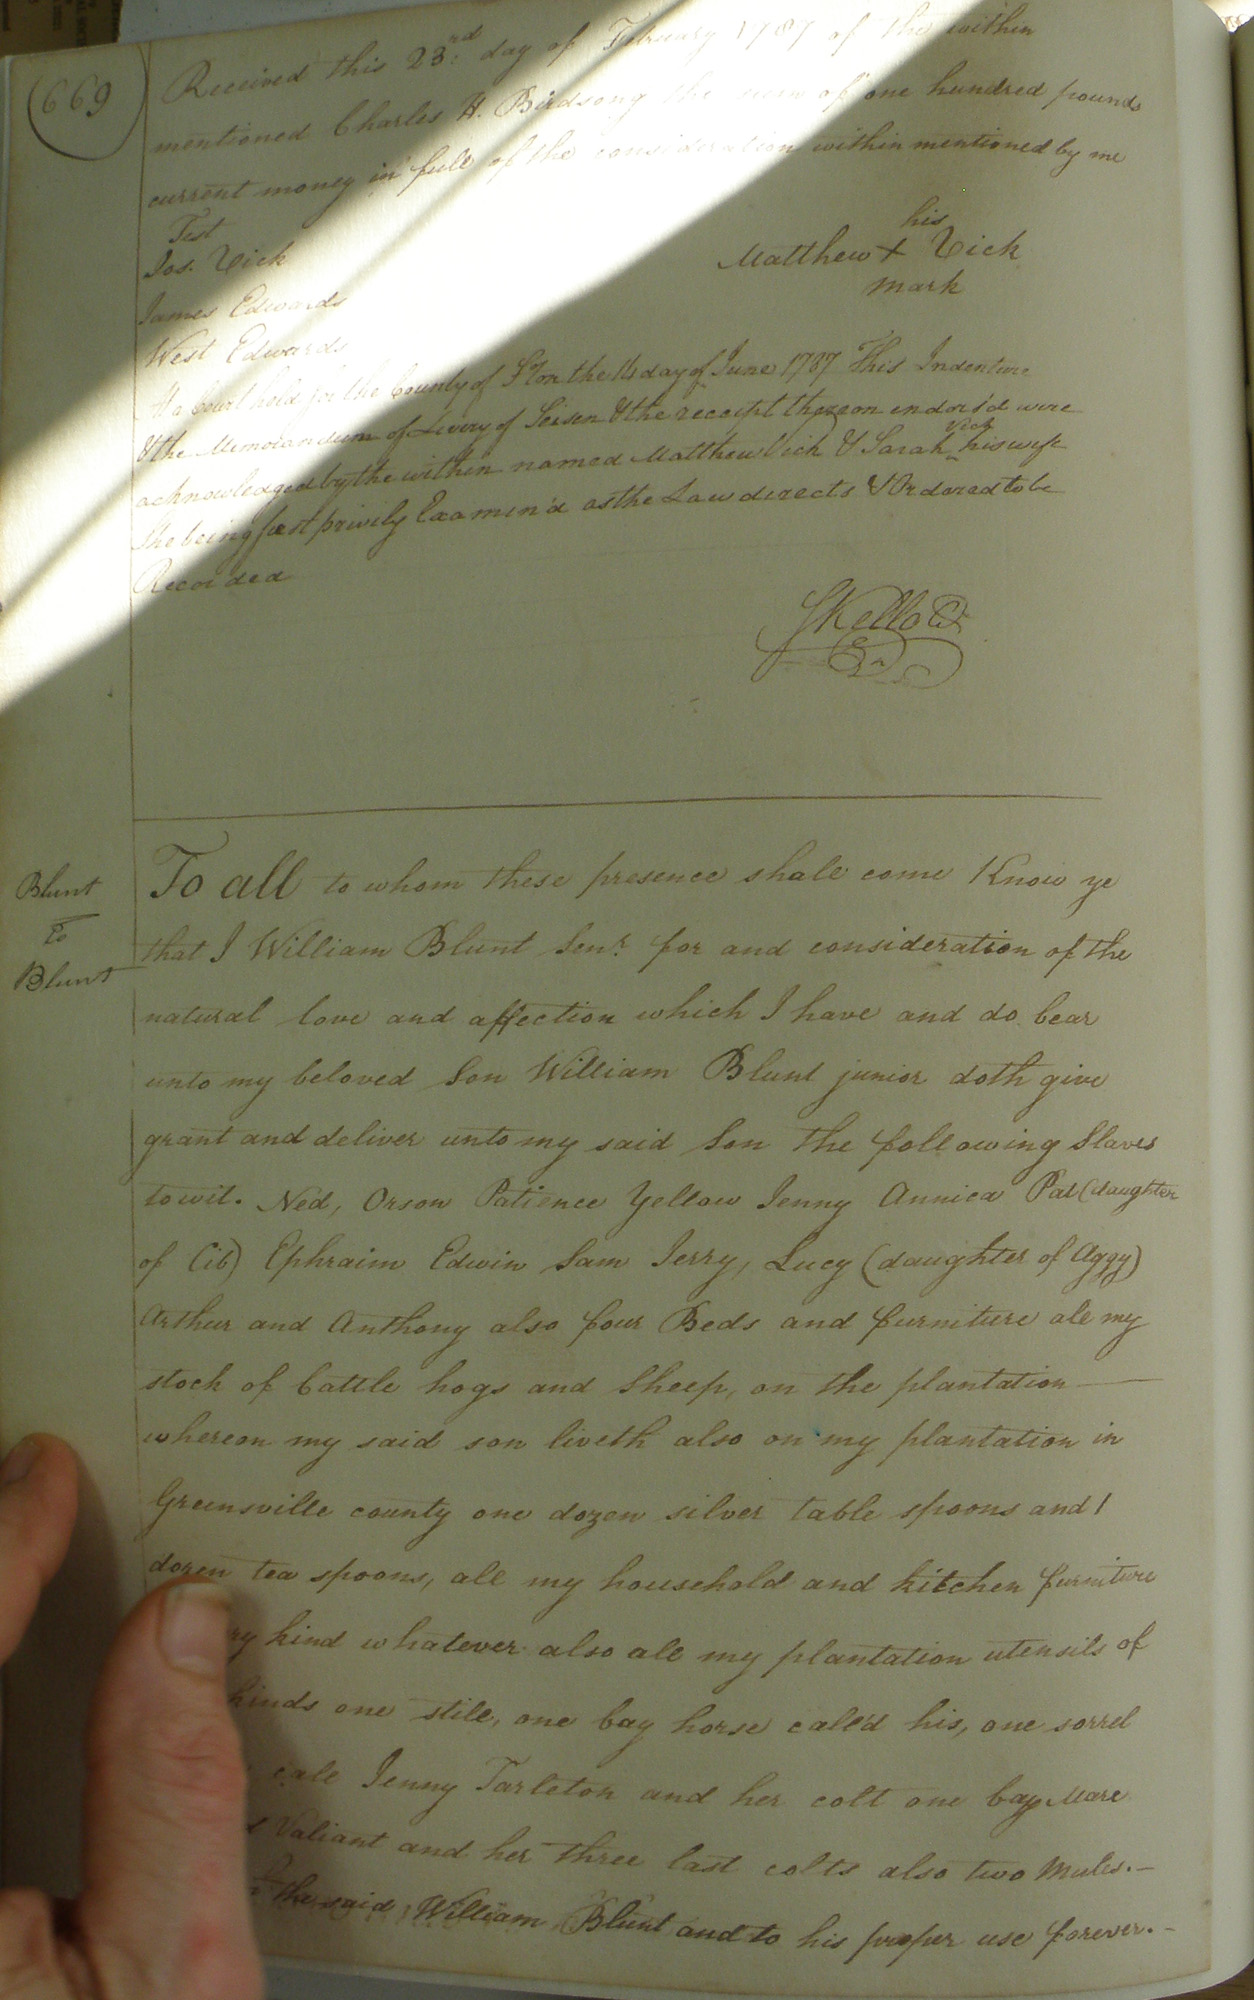 669
Received this 23rd day of February 1787 of the within
mentioned Charles H. Birdsong the sum of one hundred pounds
current money in full of the consideration within mentioned by me
Test
Jos. Vick
his
Matthew + Vick
mark
James Edwards
West Edwards
At a Court held for the County of Ston the 14 day of June 1787 This Indenture
& the Memorandum of Livery of Seisen & the receipt thereon endors'd were
acknowledged by the within named Matthew Vick & Sarah Vick his wife
She being first privily Examen'd as the Law derects & Ordered to be
Recorded
SKello
Blunt
to
Blunt
To all to whom these presence shall come Know ye
that I William Blunt Senr. for and consideration of the
natural love and affection which I have and do bear
unto my beloved Son William Blunt junior doth give
grant and deliver unto my said Son the following Slaves
towit. Ned, Orson Patience Yellow Jenny Annica Pat (daughter
of Cib) Ephraim Edwin Sam Jerry, Lucy (daughter of Aggy)
Arthur and Anthony also four Beds and furniture all my
stock of Cattle hogs and Sheep, on the plantation
whereon my said son liveth also on my plantation in
Greensville county one dozen silver table spoons and 1
dozen tea spoons, all my household and kitchen furniture
ry kind whatever also all my plantation utensils of
kinds one still, one bay horse call'd his, one sorrel
call Jenny Tarleton and her colt one bay Mare
Valiant and her three last colts also two Mules.—
the said William Blunt and to his proper use forever.—